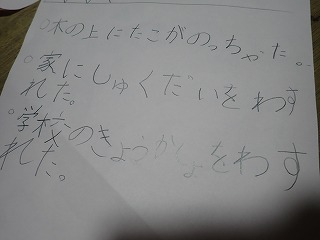 ○木の上にたこがのっちゃった。
○家にしゅくだいをわす
れた。
○学校のきょうかしょをわす
れた。